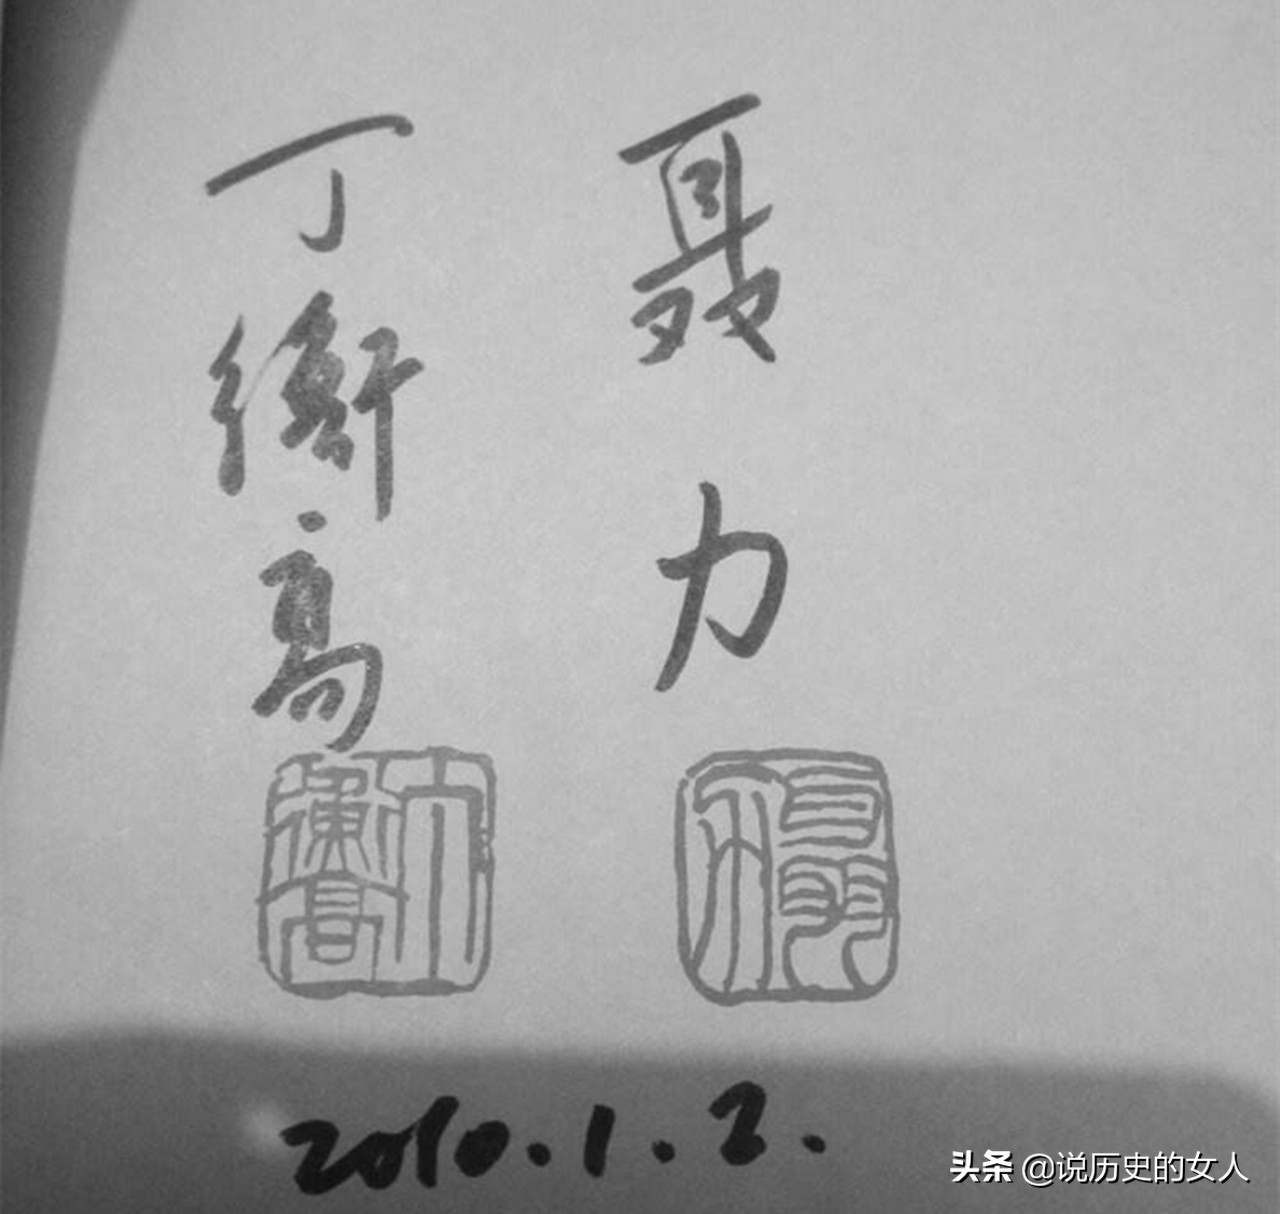 聂力
丁衡高
丁衡高
2010.1.2.
头条 @说历史的女人